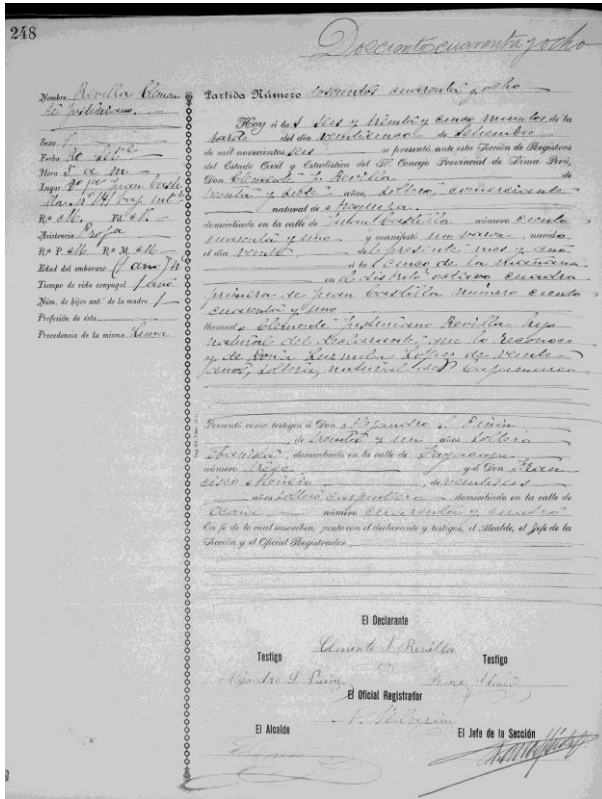 248
Doscientos cuarenta y ocho
Nombre Revilla Clemen
te Justiniano.
Sexo
Fecha 20
Hora 5 a m
Lugar
R.a M. Fil N.
Asistencia Profa
R.a P. M R.a M. M
Edad del embarazo
Tiempo de vida conyugal 1 año
Núm. de hijos ant.s de la madre 1
Profesión de ésta
Precedencia de la misma
Partida Número doscientos cuarenta y ocho
Hoy á las seis y treinta y cinco minutos de la
tarde del día veinticinco de Setiembre
de mil novecientos seis se presentó ante esta Sección de Registros
del Estado Civil y Estadística del H. Concejo Provincial de Lima Perú,
Don Clemente J. Revilla de
treinta y siete años, soltero, comerciante
natural de Moquegua
domiciliado en la calle de Juan Castilla número ciento
cuarenta y uno y manifestó un varon nacido
el día veinte del presente mes y año
á las cinco de la mañana
en el distrito octavo cuadra
primera de Juan Castilla número ciento
cuarenta y uno
llamado Clemente Justiniano Revilla hijo
natural del declarante, que lo reconoce
y de Doña Luzmila Lopez de veinte
años, soltera, natural de Cajamarca
Presentó como testigos á Don Alejandro S.
de treinta y un años soltero
domiciliado en la calle de
número trece y á Don Fran
cisco de veintiseis
años soltero carpintero domiciliado en la calle de
número cuarenta y cuatro
En fe de lo cual suscriben, junto con el declarante y testigos, el Alcalde, el Jefe de la
Sección y el Oficial Registrador
El Declarante
Clemente J. Revilla
Testigo
Testigo
Alejandro S.
El Oficial Registrador
El Alcalde
El Jefe de la Sección